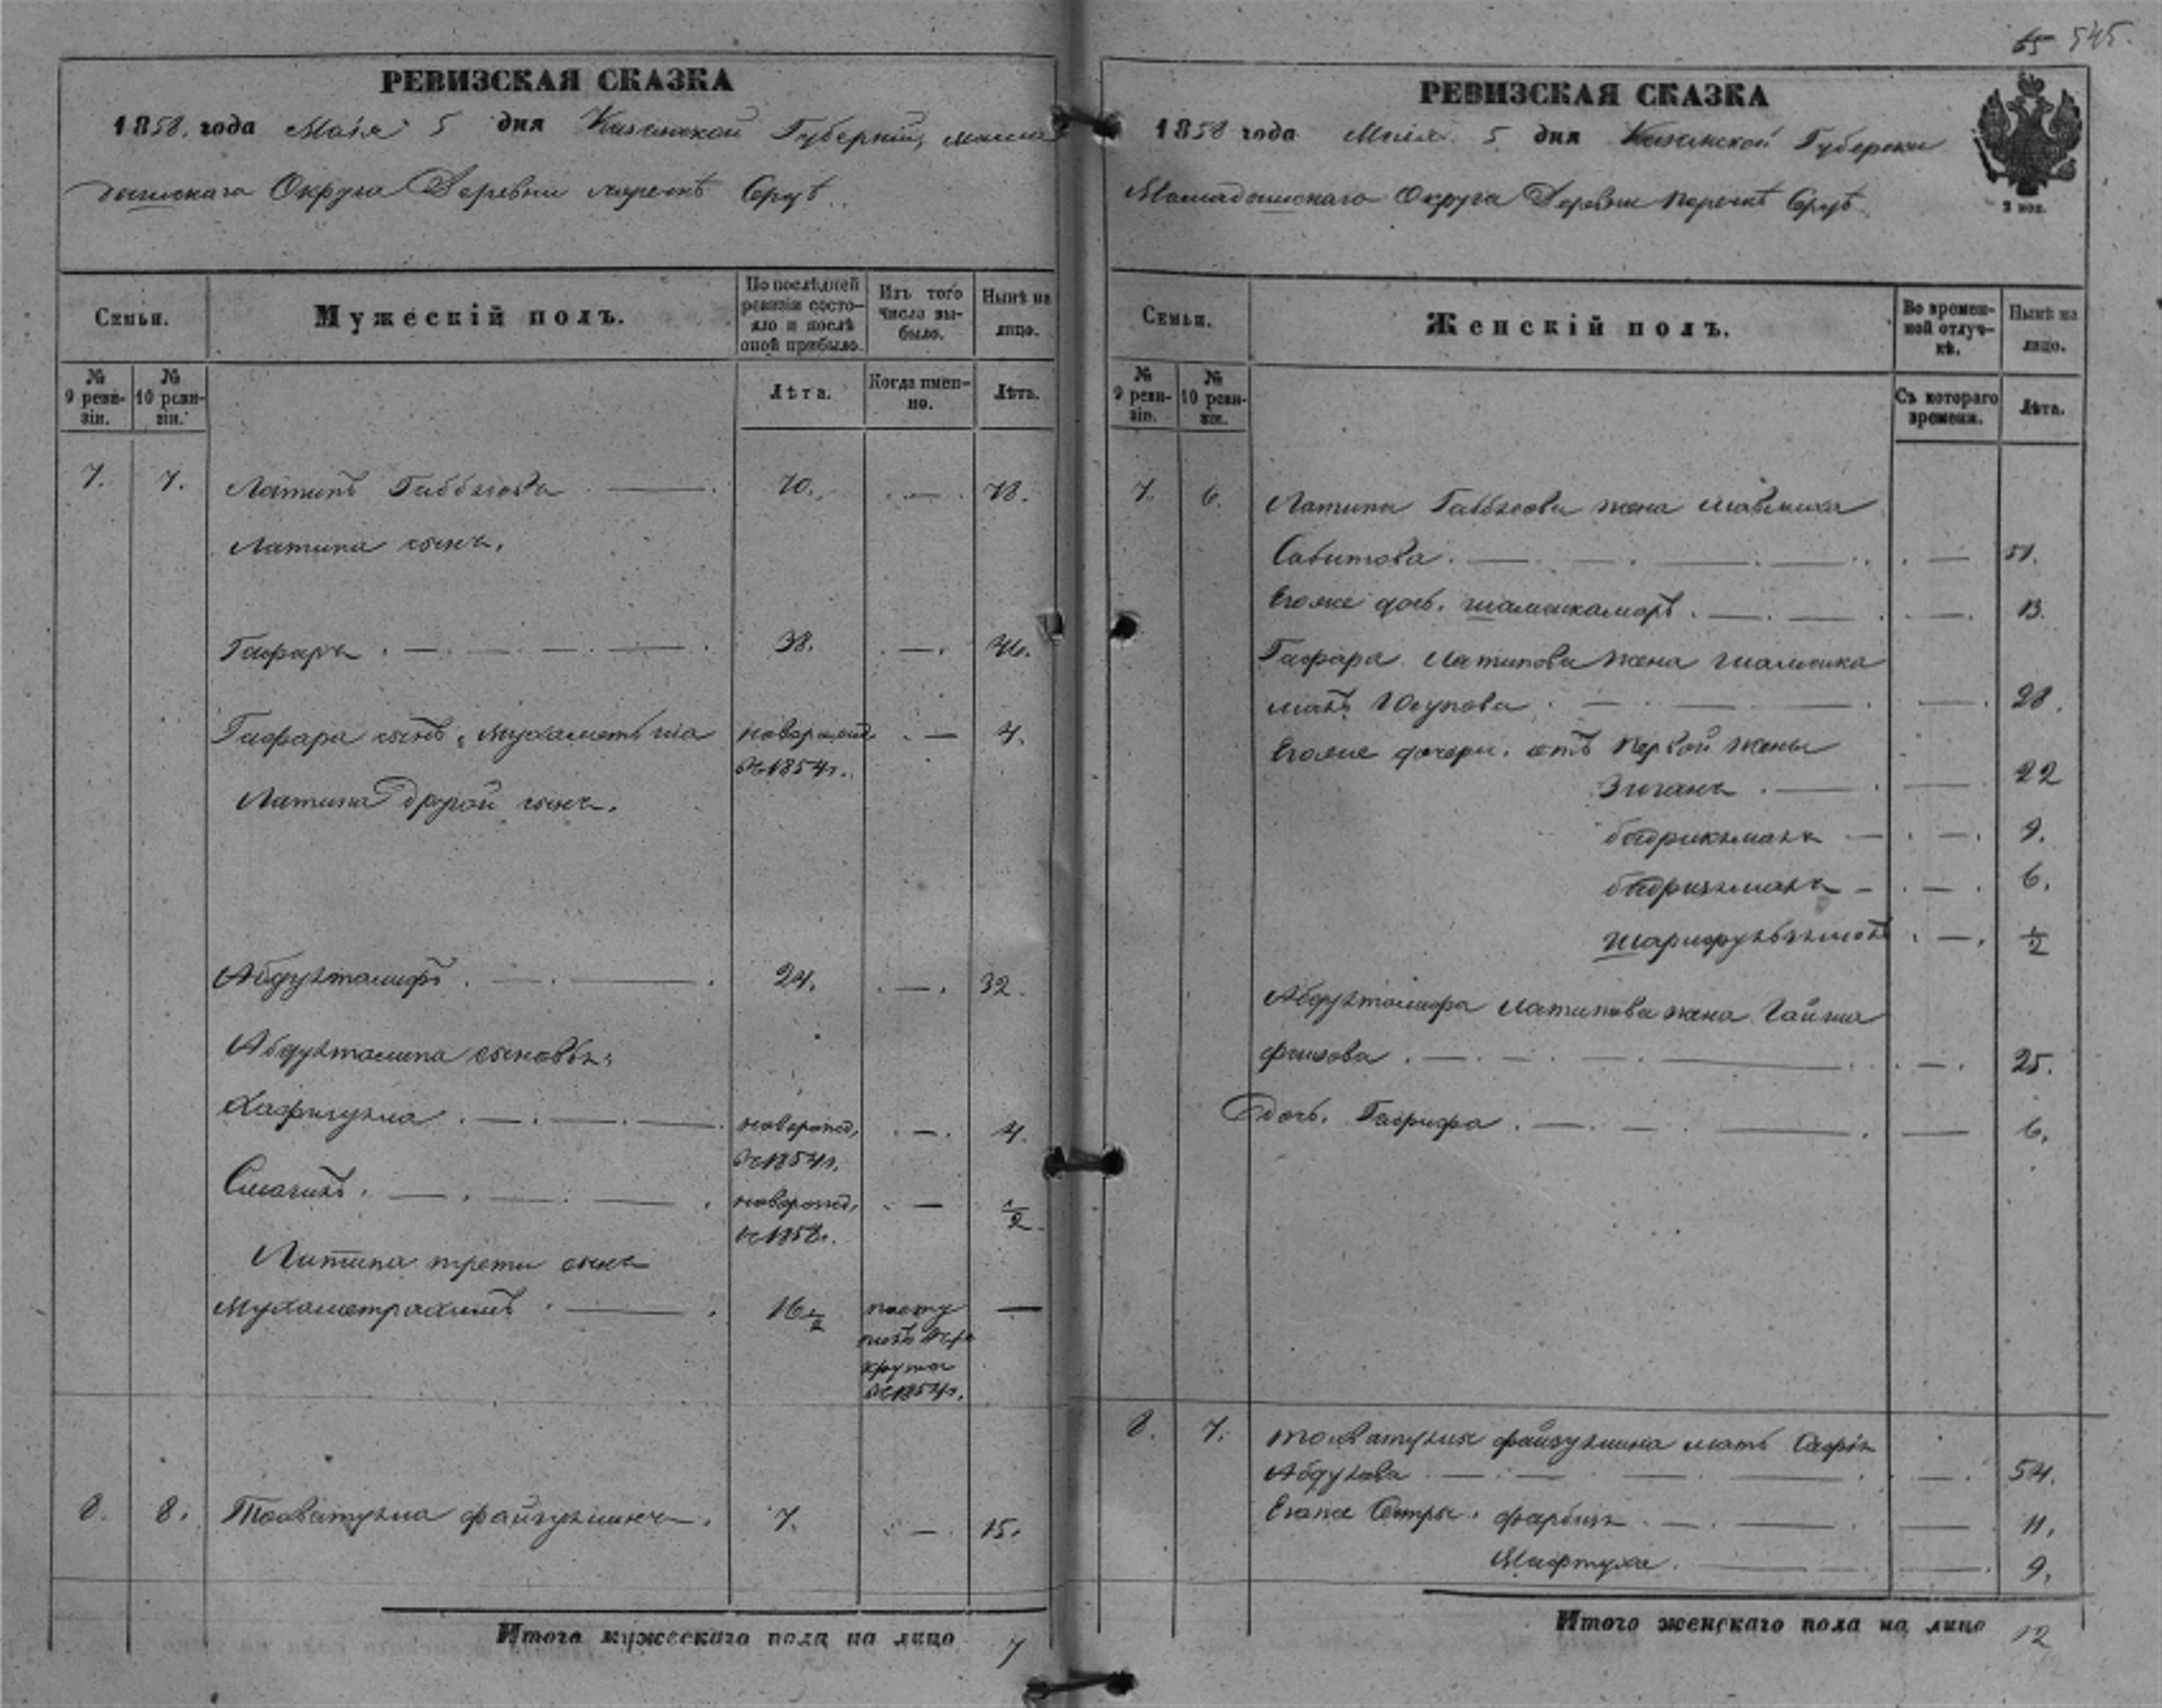 65 545.
РЕВИЗСКАЯ СКАЗКА
1858. года Маія 5 дня Казанской Губерніи, мама
дышскаго Округа Деревни
По послѣдней
ревизіи состо-
яло и послѣ
оной прибыло.
Изъ того
числа вы-
было.
Нынѣ на
лицо.
Семьи.
Мужескій полъ.
№
9 реви-
зіи.
№
10 реви-
зіи.
Лѣта.
Когда имен-
но.
Лѣта.
7. 7. Латипъ 70. — 78.
Латипа сынъ.
Гафаръ . — 38. — 46.
Гафара сынъ, Мухаметьша новорожд. — 4.
въ 1854г.
Латипа Другой сынъ.
Абдулталифъ . — 24. — 32.
Абдулталипа сыновья:
Хафизулла . — новорожд. — 4.
въ 1854г.
Смагилъ . — новорожд. — 1/2
въ 1858г.
Латипа трети сынъ
Мухаметрахимъ . — 16 1/2 посту —
пилъ въ ре
круты
въ 1854г.
8. 8. Тохватулла Файзуллинъ. 7. — 15.
Итого мужескаго пола на лицо 7
РЕВИЗСКАЯ СКАЗКА
1858 года Маія 5 дня Казанской Губерніи
Мамадышскаго Округа Деревни
2 коп.
Семьи.
Женскій полъ.
Во времен-
ной отлуч-
кѣ.
Нынѣ на
лицо.
№
9 реви-
зіи.
№
10 реви-
зіи.
Съ котораго
времени.
Лѣта.
7. 6. Латипа жена
Сабитова . — 51.
Егоже дочь. Шамсикамаръ . — 13.
Гафара Латипова жена Шамсика
маль Юсупова . — 28.
Егоже дочери. отъ первой жены
— 22
— 9.
— 6.
— 1/2
Абдулталифа Латипова жена Гайша
— 25.
Дочь. — 6.
8. 7. Тохватуллы Файзуллина мать
Абдулова — 54.
Егоже Сестры. — 11.
Мифтуха . — 9.
Итого женскаго пола на лицо 12